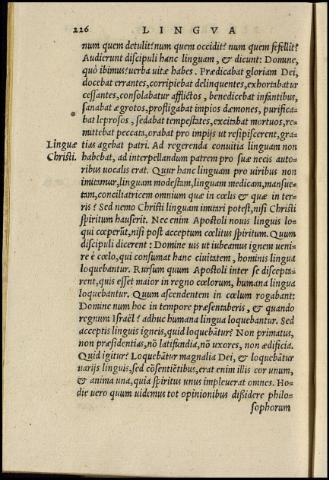 226 LINGVA
num quem detulit? num quem occidit? num quem fefellit?
Audierunt discipuli hanc linguam, & dicunt: Domine,
quò ibimus? uerba uitæ habes. Prædicabat gloriam Dei,
docebat errantes, corripiebat delinquentes, exhortabatur
cessantes, consolabatur afflictos, benedicebat infantibus,
sanabat ægrotos, profligabat impios dæmones, purifica-
bat leprosos, sedabat tempestates, excitabat mortuos, re-
mittebat peccata, orabat pro impijs ut resipiscerent, gra-
Linguæ tias agebat patri. Ad regerenda conuitia linguam non
Christi. habebat, ad interpellandum patrem pro suæ necis auto-
ribus uocalis erat. Quur hanc linguam pro uiribus non
imitamur, linguam modestam, linguam medicam, mansue-
tam, conciliatricem omnium quæ in cœlis & quæ in ter-
ris? Sed nemo Christi linguam imitari potest, nisi Christi
spiritum hauserit. Nec enim Apostoli nouis linguis lo-
qui cœperũt, nisi post acceptum cœlitus spiritum. Quum
discipuli dicerent: Domine uis ut iubeamus ignem ueni-
re è cœlo, qui consumat hanc ciuitatem, hominis lingua
loquebantur. Rursum quum Apostoli inter se discepta-
rent, quis esset maior in regno cœlorum, humana lingua
loquebantur. Quum ascendentem in cœlum rogabant:
Domine num hoc in tempore præsentaberis, & quando
regnum Israël? adhuc humana lingua loquebantur. Sed
acceptis linguis igneis, quid loquebãtur? Non primatus,
non præsidentias, nõ latifundia, nõ uxores, non ædificia.
Quid igitur? Loquebãtur magnalia Dei, & loquebãtur
uarijs linguis, sed cõsentiẽtibus, erat enim illis cor unum,
& anima una, quia spiritus unus impleuerat omnes. Ho-
die uero quum uidemus tot opinionibus dissidere philo-
sophorum